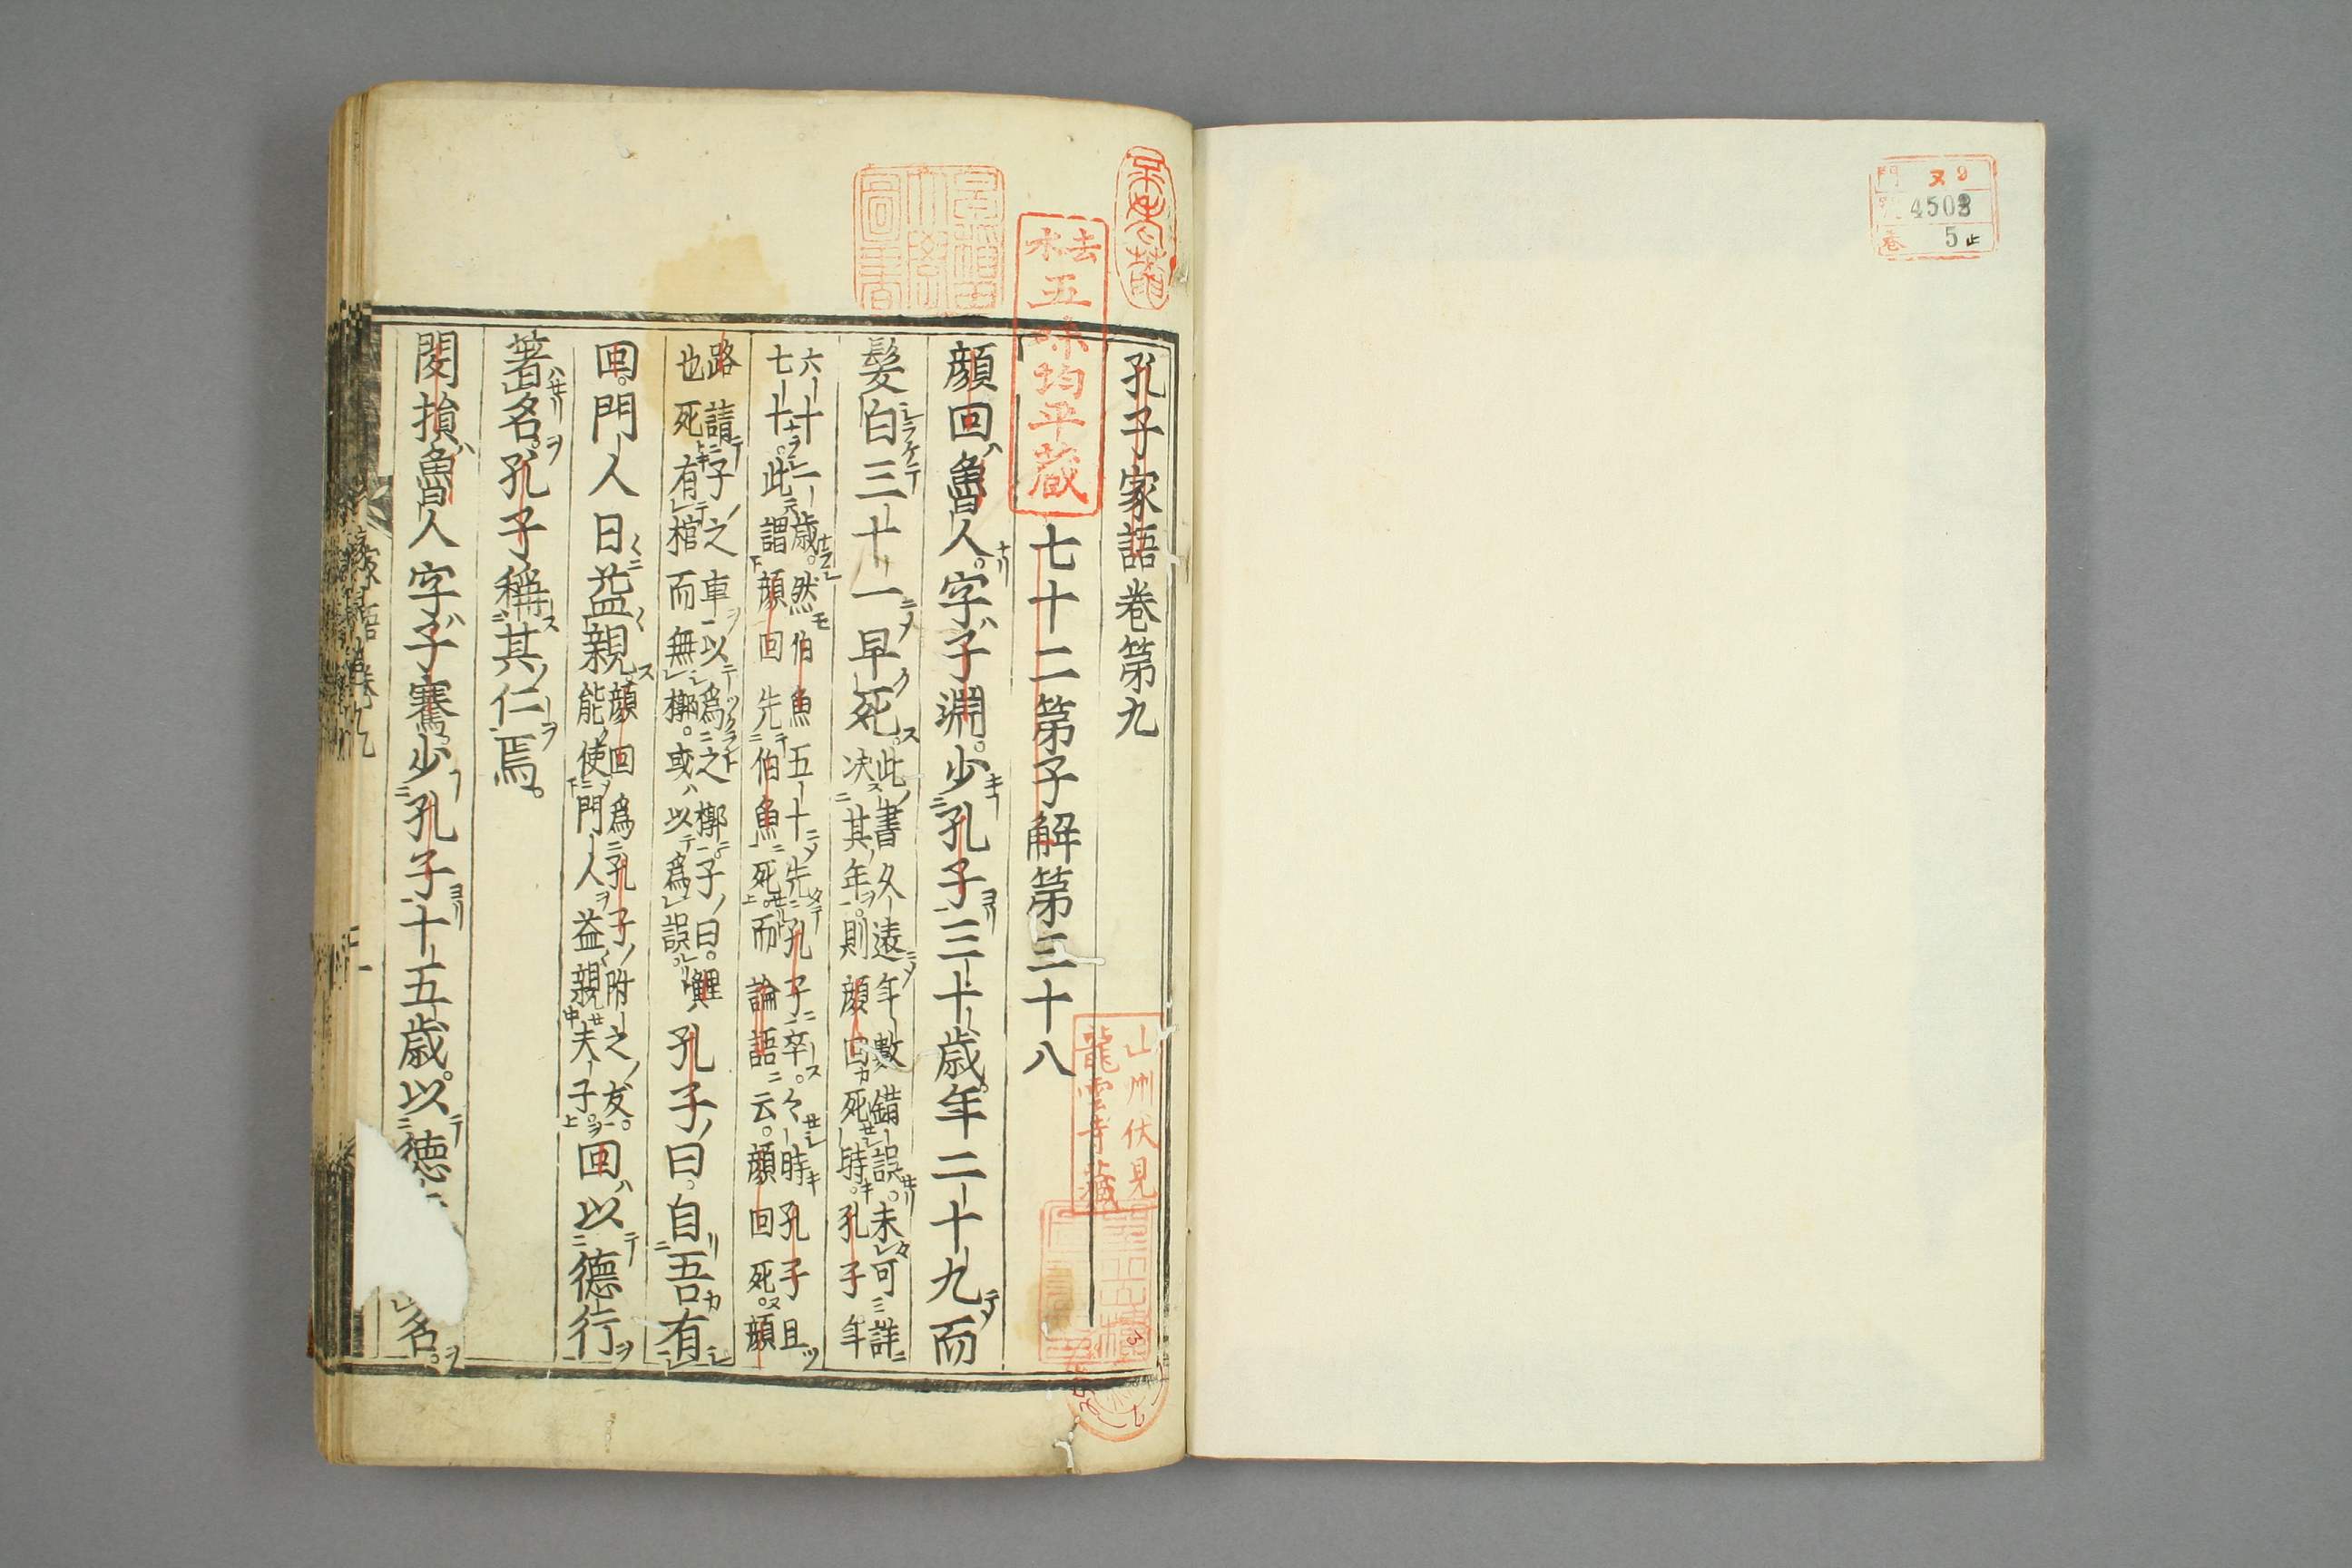 門 ヌ9
號 4503
卷 5止
孔子家語卷第九
七十二第子解第三十八
顔回魯人字子淵少孔子三十歳年二十九而
髮白三十一早死此書久遠年數錯誤未可詳
决其年則顔回死時孔子年
六十一歳然伯魚五十先孔子卒卒時孔子且
七十此謂顔回先伯魚死而論語云顔回死顔
路請子之車以爲之槨子曰鯉
也死有棺而無槨或以爲誤
孔子曰自吾有
回門人日益親顔回爲孔子附之友
能使門人益親夫子
回以德行
著名孔子稱其仁焉
閔損魯人字子騫少孔子十五歳以德
名
家語卷九
山州伏見
龍雲寺藏
去水
五味均平藏